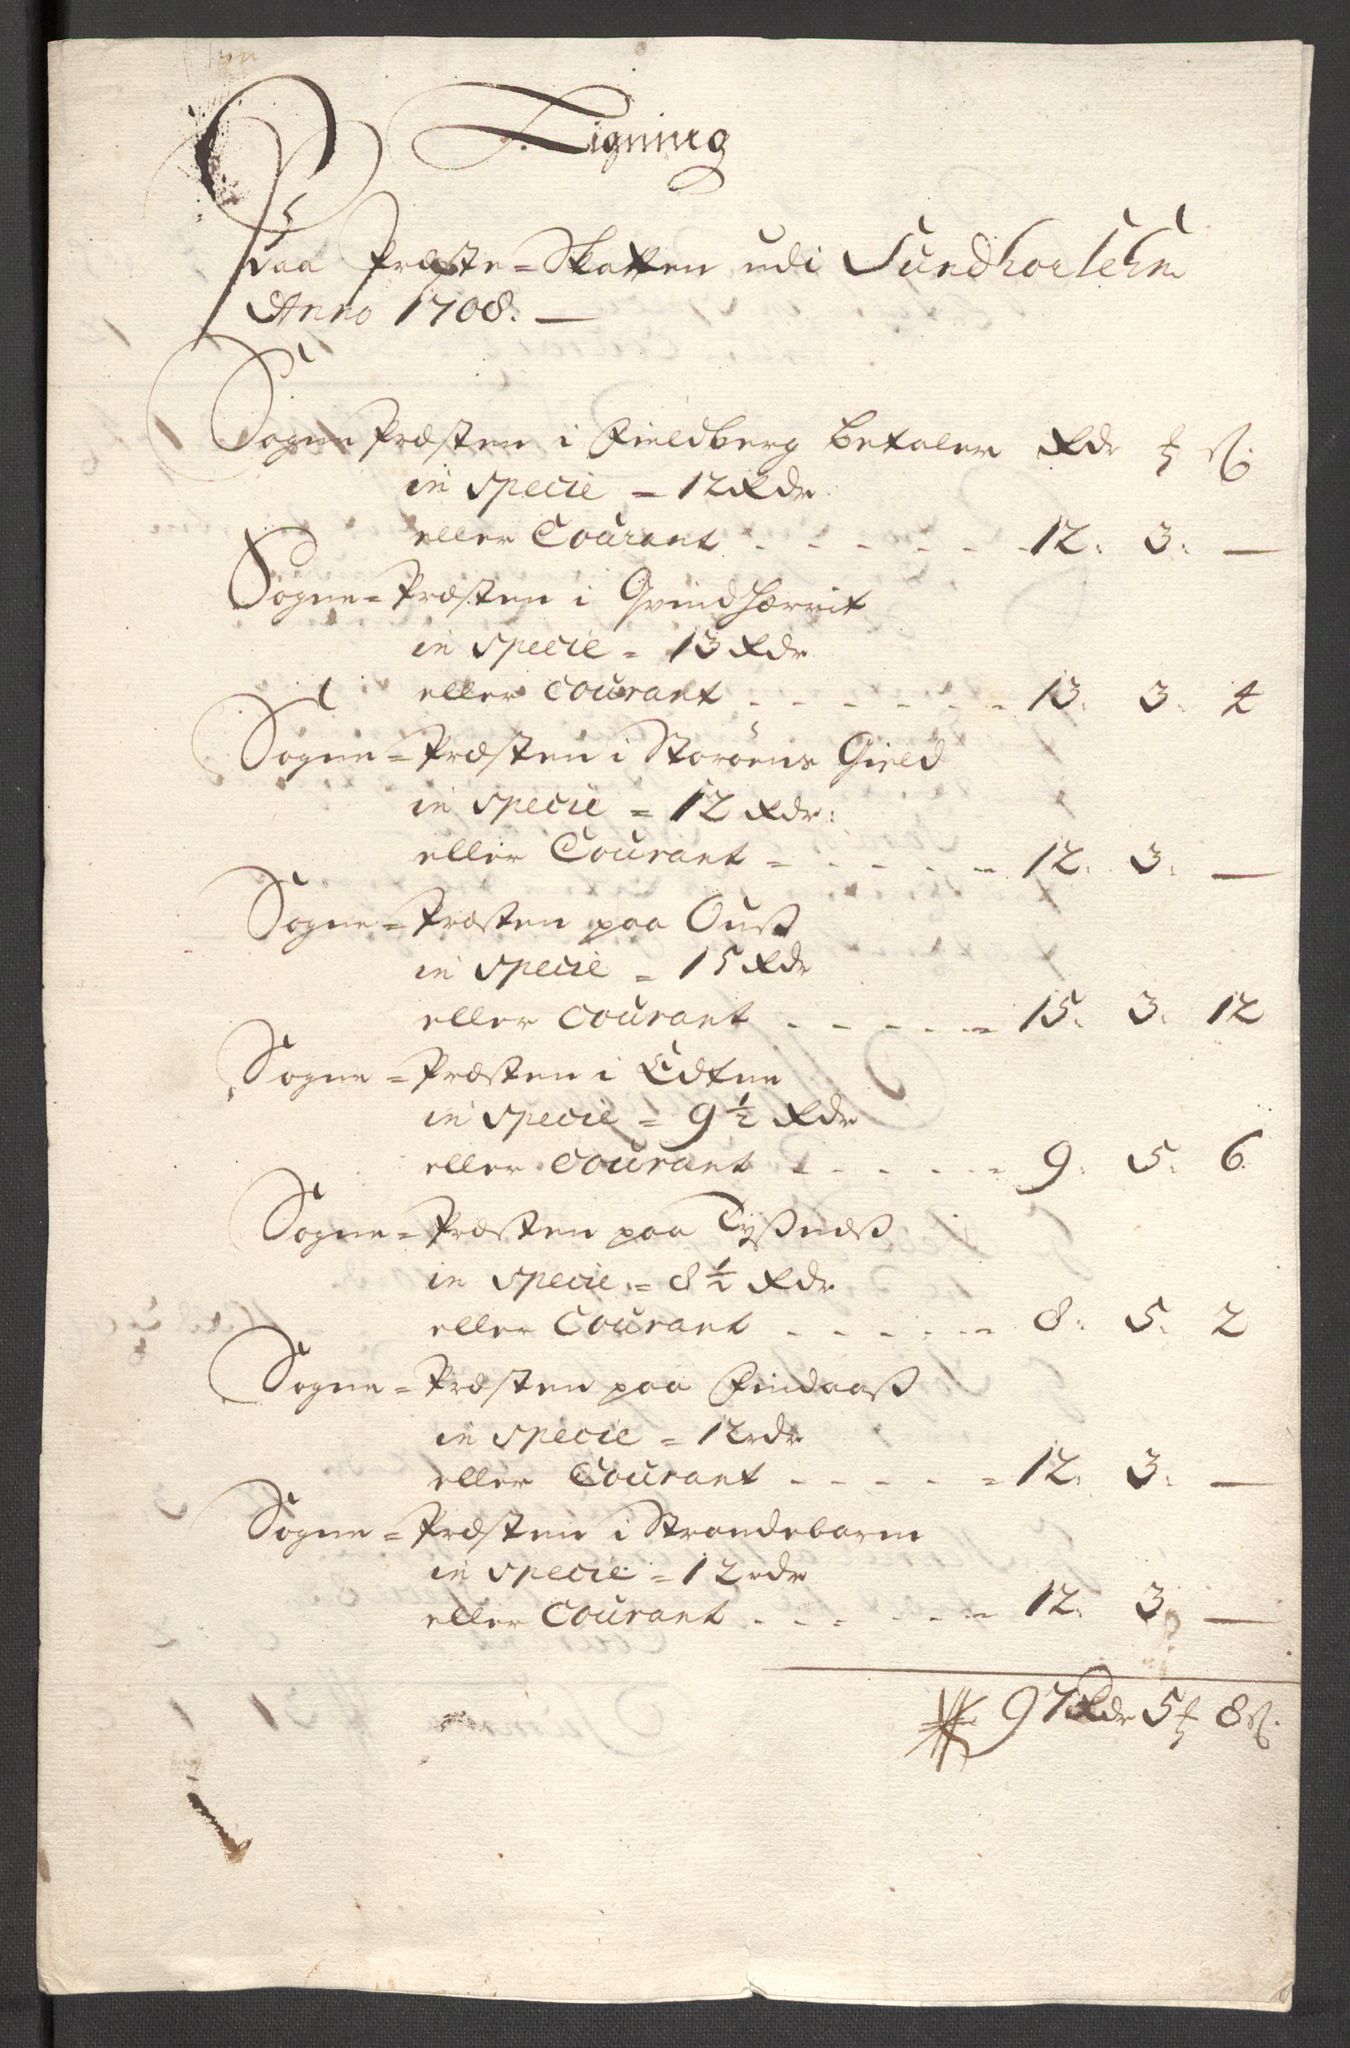 Ligning
Paa Præste-Skatten udi Sundhorlehn
Anno 1708. —
Sogne Præsten i Fieldberg betaler Rdr ß
in specie = 12 Rdr
eller Courant . . . . . . 12: 3: —
Sogne-Præsten i Qvindhærrit
in specie = 13 Rdr
eller Courant . . . . . . 13: 3: 4
Sogne-Præsten i Storøens Gield
in specie = 12 Rdr:
eller Courant . . . . . . 12: 3: —
Sogne-Præsten paa Ouß
in specie = 15 Rdr
eller Courant . . . . . . 15: 3: 12
Sogne-Præsten i Edtne
in specie = 9½ Rdr
eller Courant . . . . . . 9: 5: 6
Sogne-Præsten paa Tyßneß
in specie = 8½ Rdr
eller Courant . . . . . . 8: 5: 2
Sogne-Præsten paa Findaaß
in specie = 12 rdr
eller Courant . . . . . . 12: 3: —
Sogne-Præsten i Strandebarm
in specie = 12 rdr
eller Courant . . . . . . 12: 3 —
97 Rdr 5 8 ß